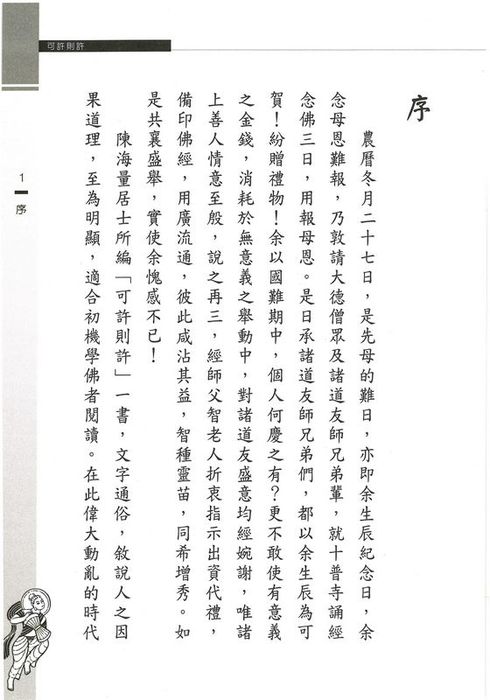 可許則許
序
農曆冬月二十七日，是先母的難日，亦即余生辰紀念日，余
念母恩難報，乃敦請大德僧眾及諸道友師兄弟輩，就十普寺誦經
念佛三日，用報母恩。是日承諸道友師兄弟們，都以余生辰為可
賀！紛贈禮物！余以國難期中，個人何慶之有？更不敢使有意義
之金錢，消耗於無意義之舉動中，對諸道友盛意均經婉謝，唯諸
上善人情意至殷，說之再三，經師父智老人折衷指示出資代禮，
備印佛經，用廣流通，彼此咸沾其益，智種靈苗，同希增秀。如
是共襄盛舉，實使余愧感不已！
陳海量居士所編「可許則許」一書，文字通俗，敘說人之因
果道理，至為明顯，適合初機學佛者閱讀。在此偉大動亂的時代
1 序